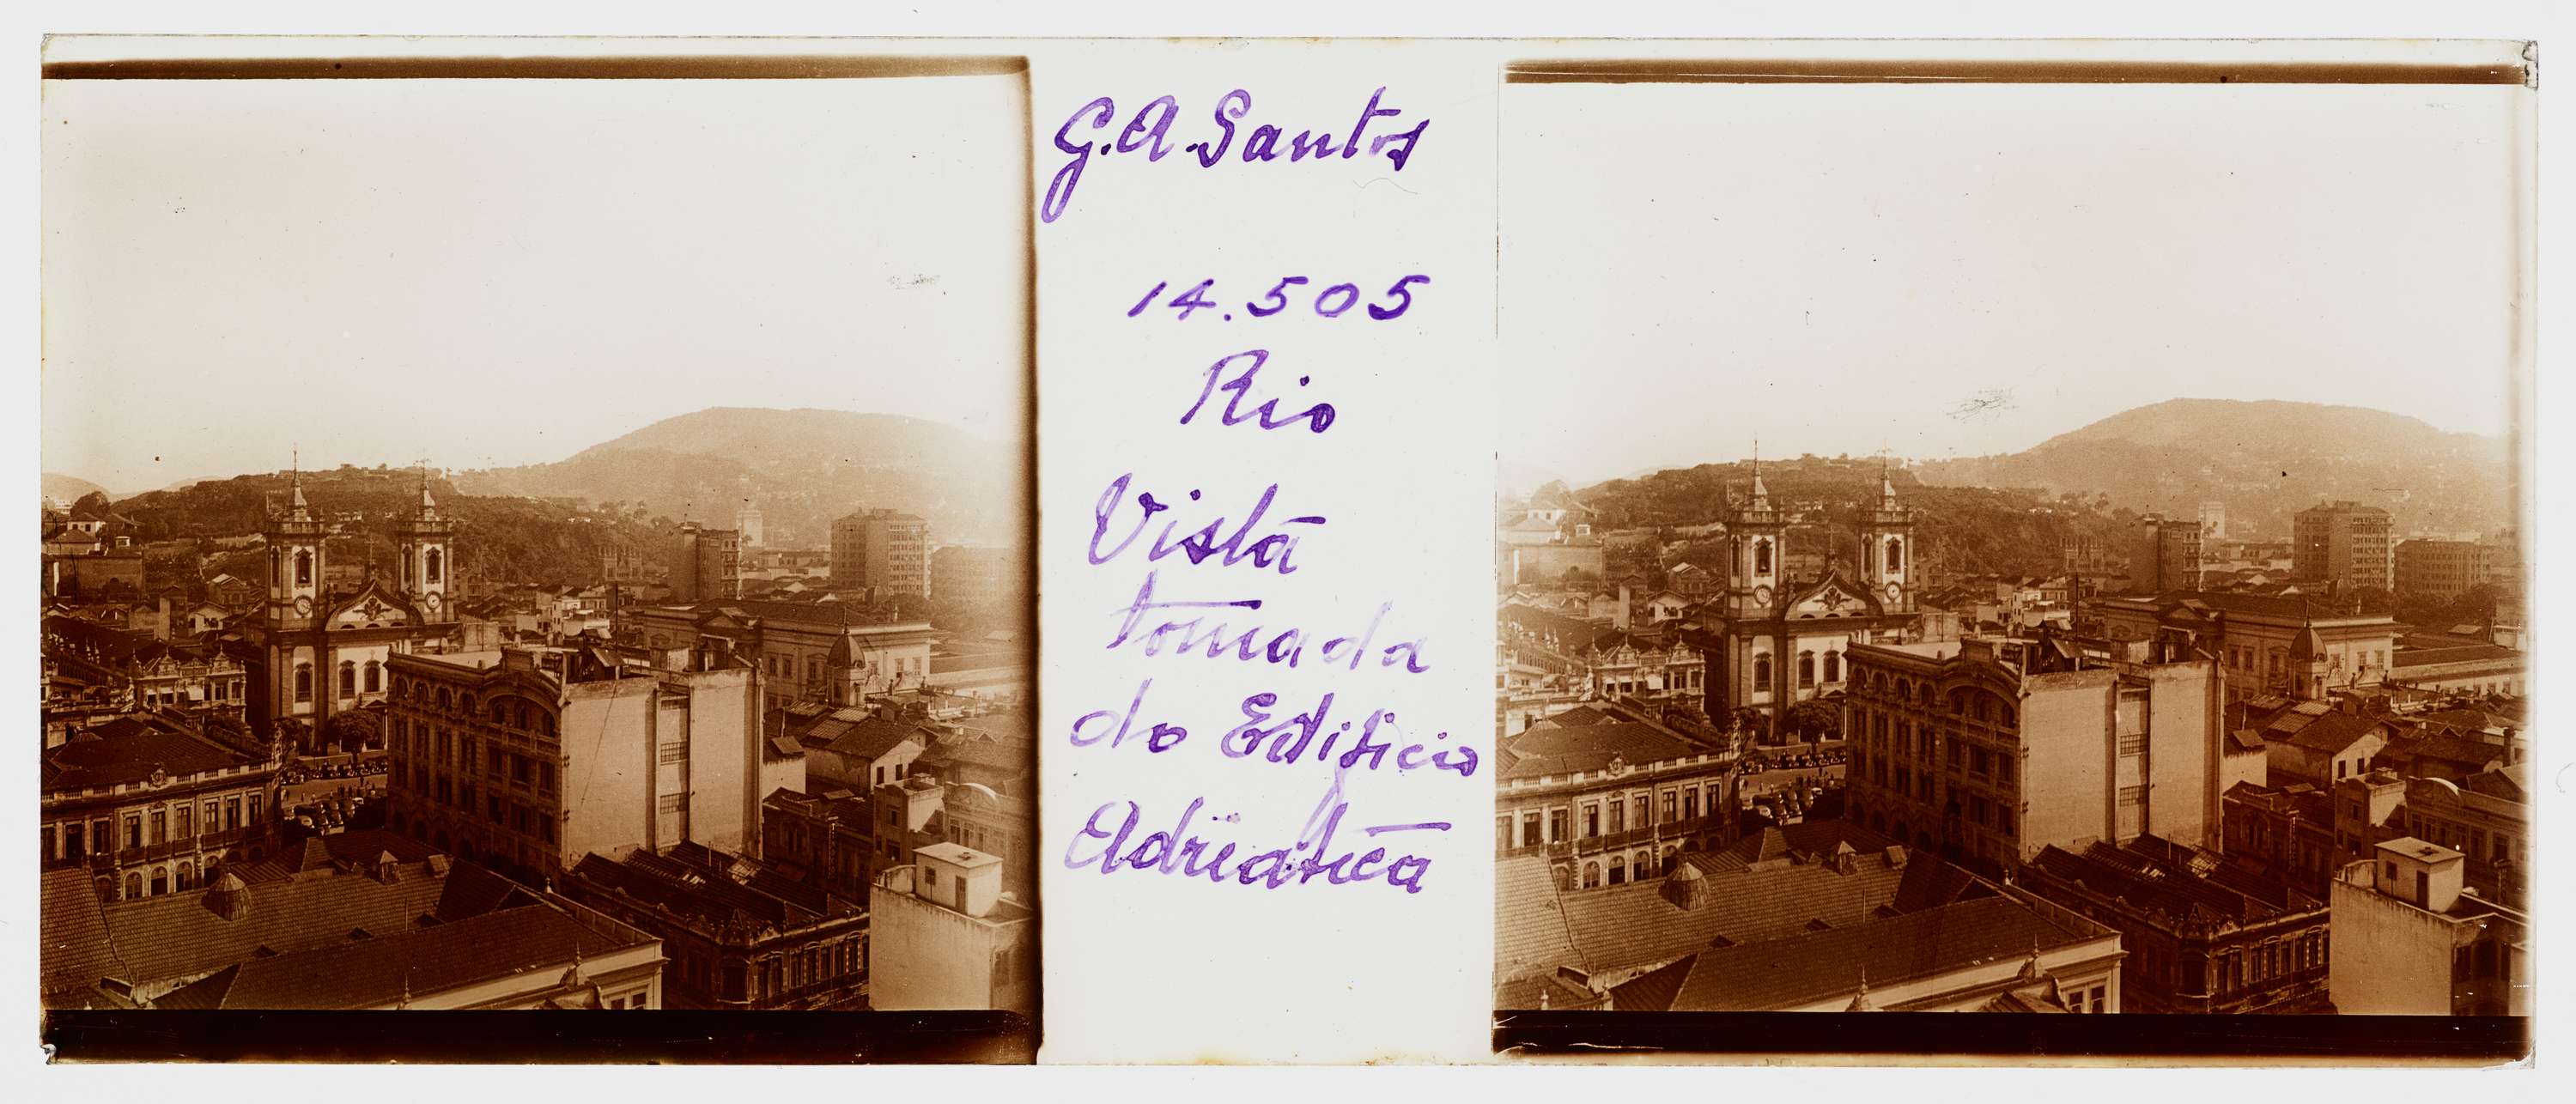 G.A. Santos
14.505
Rio
Vista
tomada
do Edificio
Adriatica